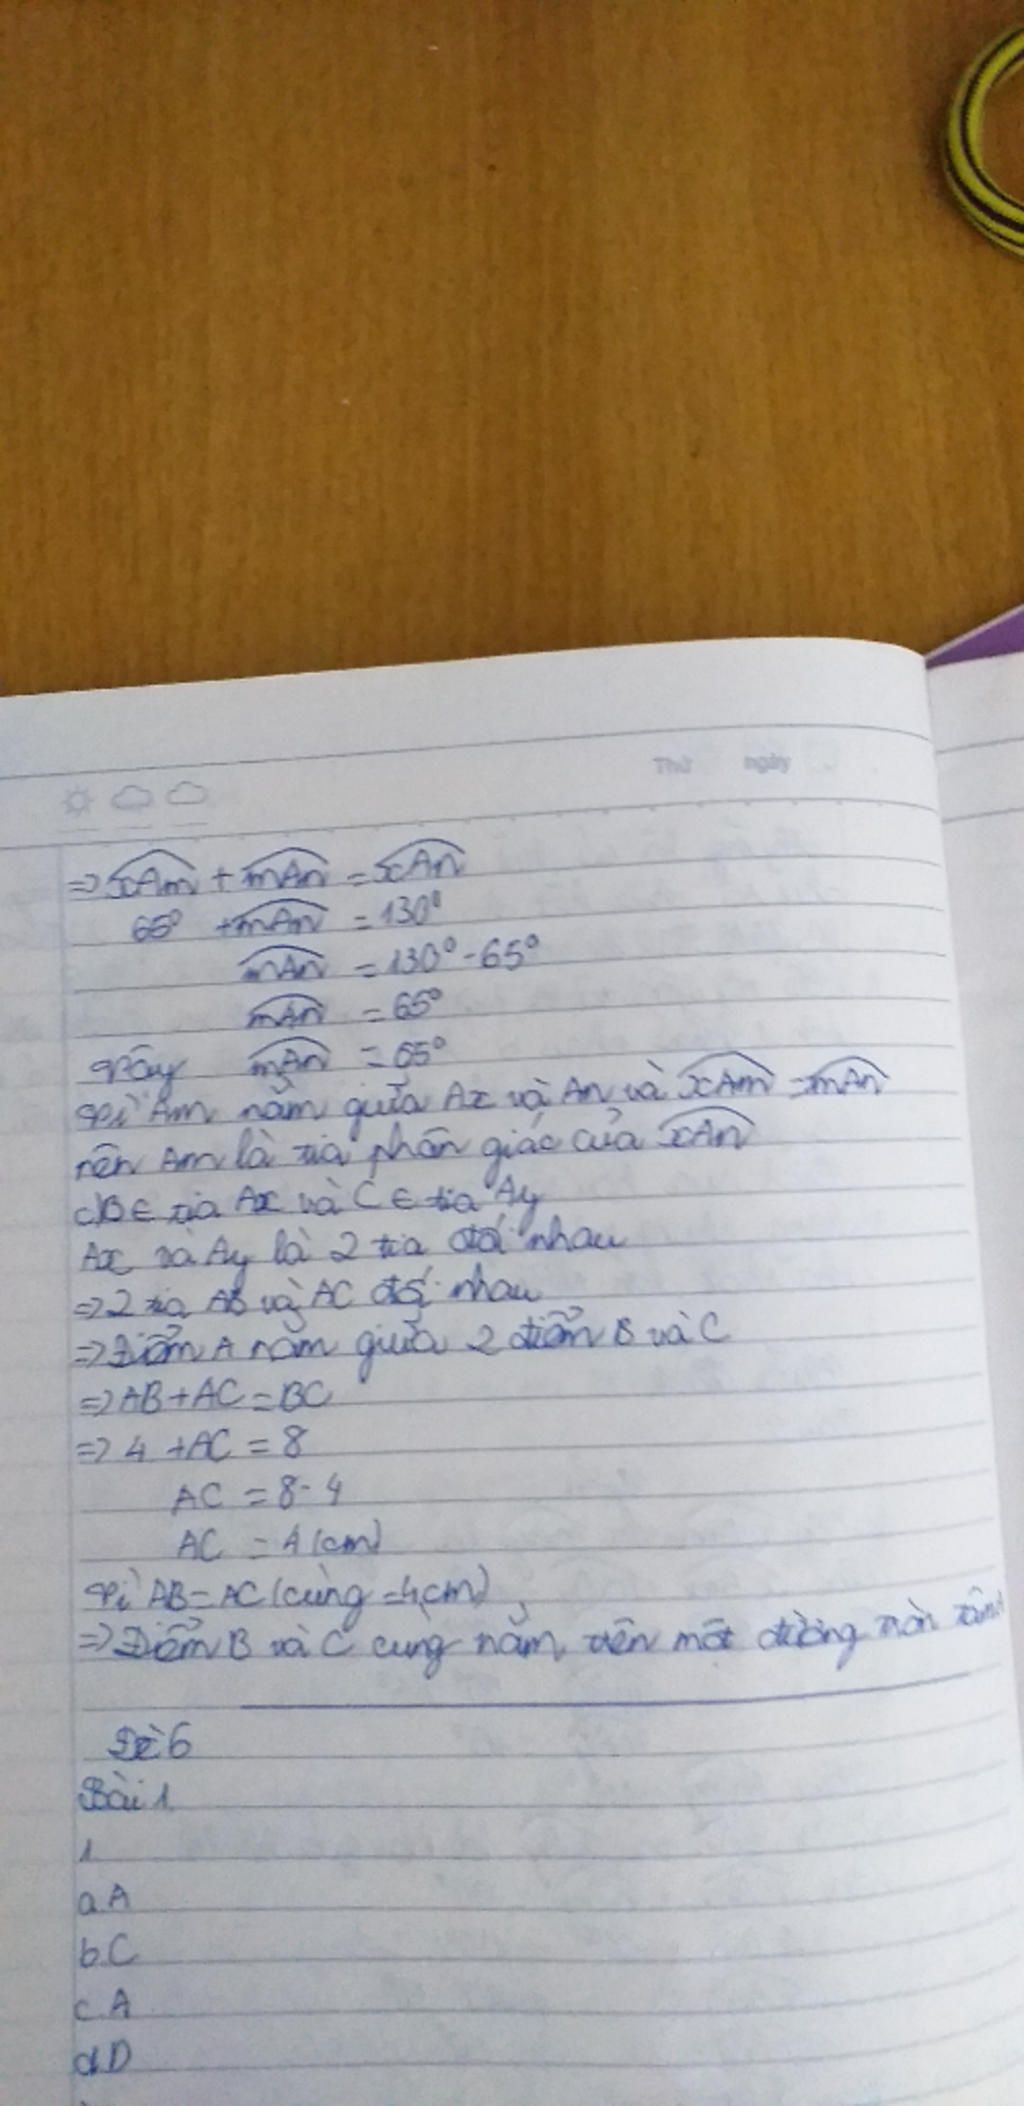 Thứ ngày
=> xAm + mAn = xAn
65° + mAn = 130°
mAn = 130° - 65°
mAn = 65°
Vậy mAn = 65°
Vì Am nằm giữa Ax và An và xAm = mAn
nên Am là tia phân giác của xAn
c) B ∈ tia Ax và C ∈ tia Ay
Ax và Ay là 2 tia đối nhau
=> 2 tia AB và AC đối nhau
=> Điểm A nằm giữa 2 điểm B và C
=> AB + AC = BC
=> 4 + AC = 8
AC = 8 - 4
AC = 4 (cm)
Vì AB = AC (cùng = 4cm)
=> Điểm B và C cùng nằm trên một đường tròn tâm A
Đề 6
Bài 1
1
a. A
b. C
c. A
d. D